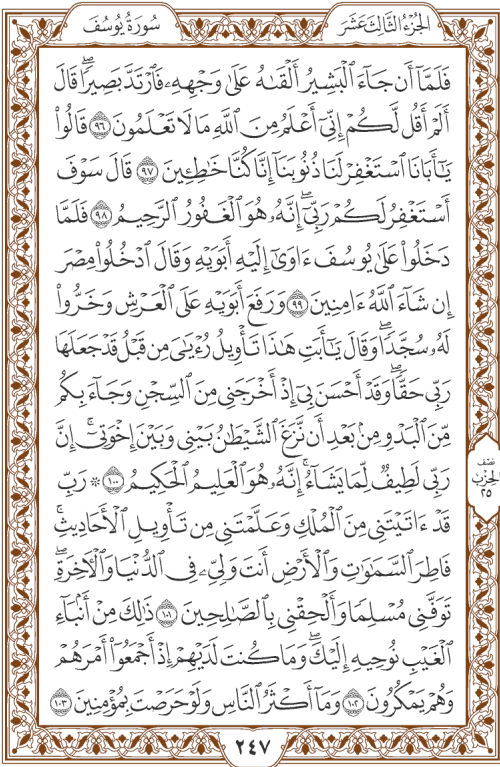 الجزء الثالث عشر
سورة يوسف
فَلَمَّآ أَن جَآءَ ٱلْبَشِيرُ أَلْقَىٰهُ عَلَىٰ وَجْهِهِۦ فَٱرْتَدَّ بَصِيرًاۖ قَالَ
أَلَمْ أَقُل لَّكُمْ إِنِّىٓ أَعْلَمُ مِنَ ٱللَّهِ مَا لَا تَعْلَمُونَ ٩٦ قَالُوا۟
يَـٰٓأَبَانَا ٱسْتَغْفِرْ لَنَا ذُنُوبَنَآ إِنَّا كُنَّا خَـٰطِـِٔينَ ٩٧ قَالَ سَوْفَ
أَسْتَغْفِرُ لَكُمْ رَبِّىٓۖ إِنَّهُۥ هُوَ ٱلْغَفُورُ ٱلرَّحِيمُ ٩٨ فَلَمَّا
دَخَلُوا۟ عَلَىٰ يُوسُفَ ءَاوَىٰٓ إِلَيْهِ أَبَوَيْهِ وَقَالَ ٱدْخُلُوا۟ مِصْرَ
إِن شَآءَ ٱللَّهُ ءَامِنِينَ ٩٩ وَرَفَعَ أَبَوَيْهِ عَلَى ٱلْعَرْشِ وَخَرُّوا۟
لَهُۥ سُجَّدًاۖ وَقَالَ يَـٰٓأَبَتِ هَـٰذَا تَأْوِيلُ رُءْيَـٰىَ مِن قَبْلُ قَدْ جَعَلَهَا
رَبِّى حَقًّاۖ وَقَدْ أَحْسَنَ بِىٓ إِذْ أَخْرَجَنِى مِنَ ٱلسِّجْنِ وَجَآءَ بِكُم
مِّنَ ٱلْبَدْوِ مِنۢ بَعْدِ أَن نَّزَغَ ٱلشَّيْطَـٰنُ بَيْنِى وَبَيْنَ إِخْوَتِىٓۚ إِنَّ
رَبِّى لَطِيفٌ لِّمَا يَشَآءُۚ إِنَّهُۥ هُوَ ٱلْعَلِيمُ ٱلْحَكِيمُ ١٠٠ ۞ رَبِّ
قَدْ ءَاتَيْتَنِى مِنَ ٱلْمُلْكِ وَعَلَّمْتَنِى مِن تَأْوِيلِ ٱلْأَحَادِيثِۚ
فَاطِرَ ٱلسَّمَـٰوَٰتِ وَٱلْأَرْضِ أَنتَ وَلِىِّۦ فِى ٱلدُّنْيَا وَٱلْـَٔاخِرَةِۖ
تَوَفَّنِى مُسْلِمًا وَأَلْحِقْنِى بِٱلصَّـٰلِحِينَ ١٠١ ذَٰلِكَ مِنْ أَنۢبَآءِ
ٱلْغَيْبِ نُوحِيهِ إِلَيْكَۖ وَمَا كُنتَ لَدَيْهِمْ إِذْ أَجْمَعُوٓا۟ أَمْرَهُمْ
وَهُمْ يَمْكُرُونَ ١٠٢ وَمَآ أَكْثَرُ ٱلنَّاسِ وَلَوْ حَرَصْتَ بِمُؤْمِنِينَ ١٠٣
نصف
الحزب
٢٥
٢٤٧